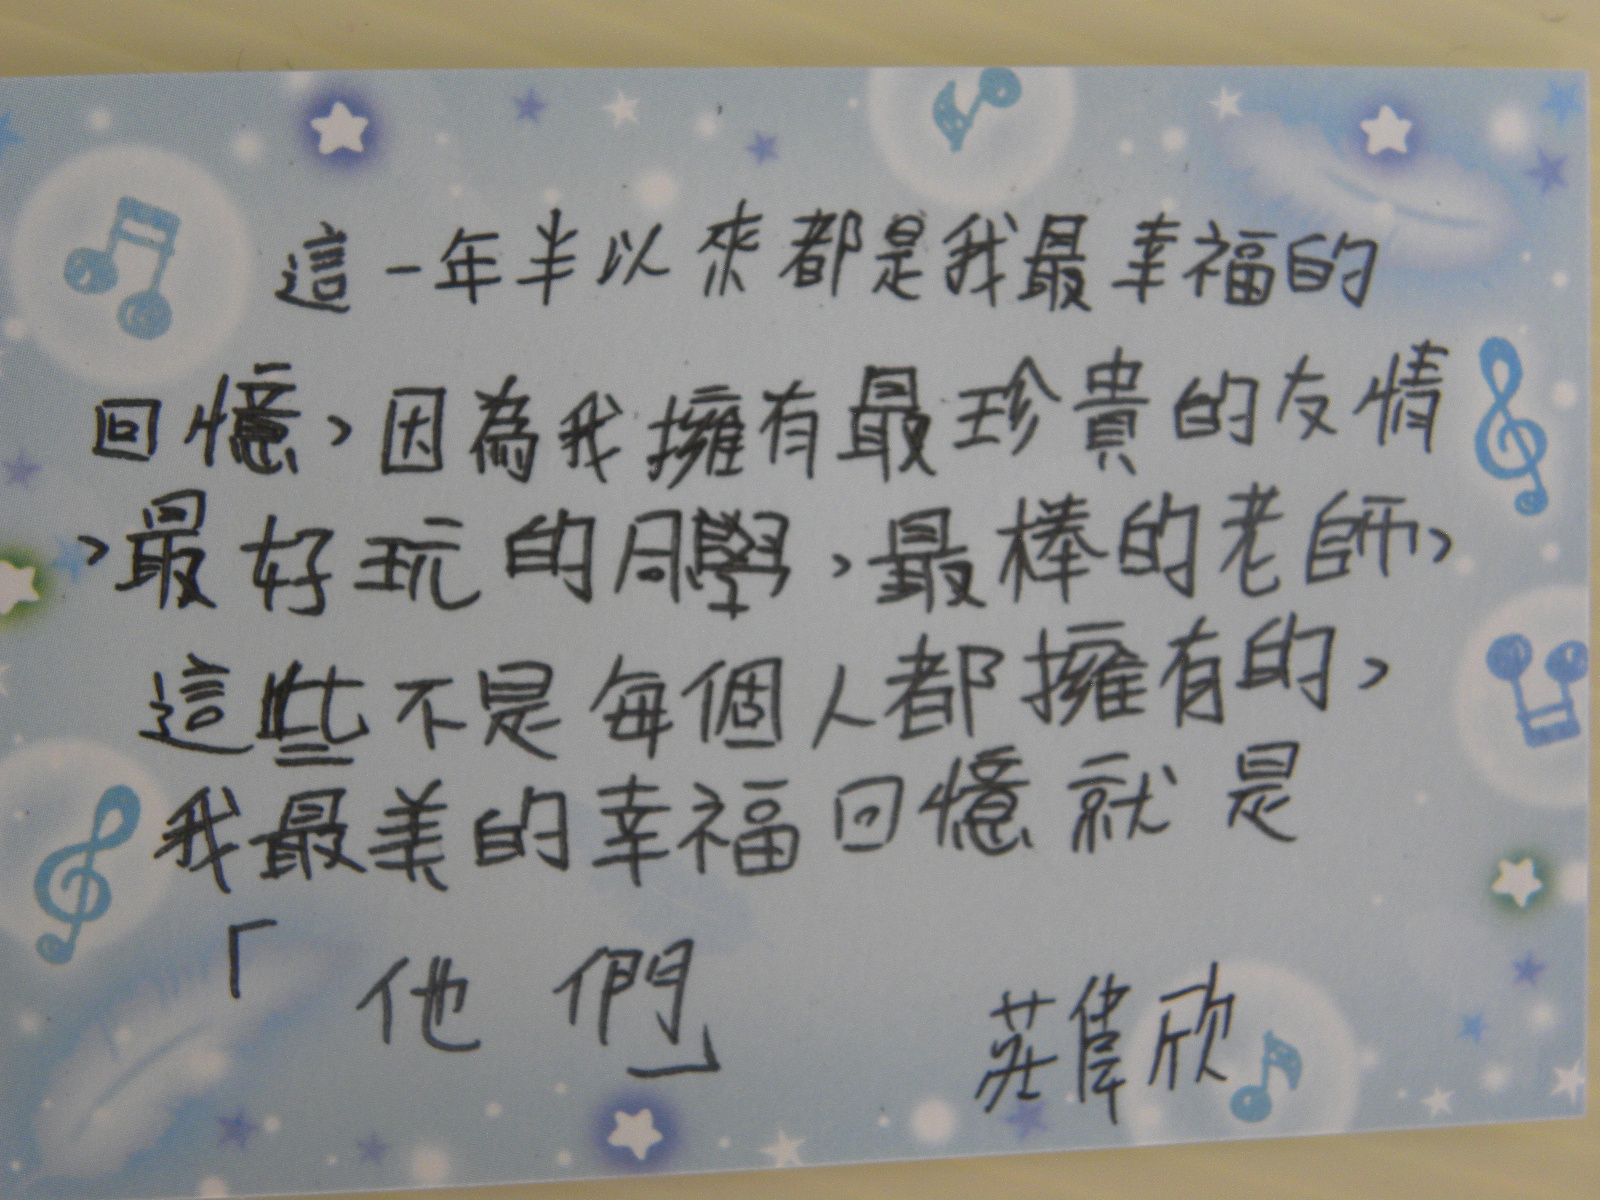 這一年半以來都是我最幸福的
回憶,因為我擁有最珍貴的友情
,最好玩的同學,最棒的老師,
這些不是每個人都擁有的,
我最美的幸福回憶就是
「他們」
莊偉欣